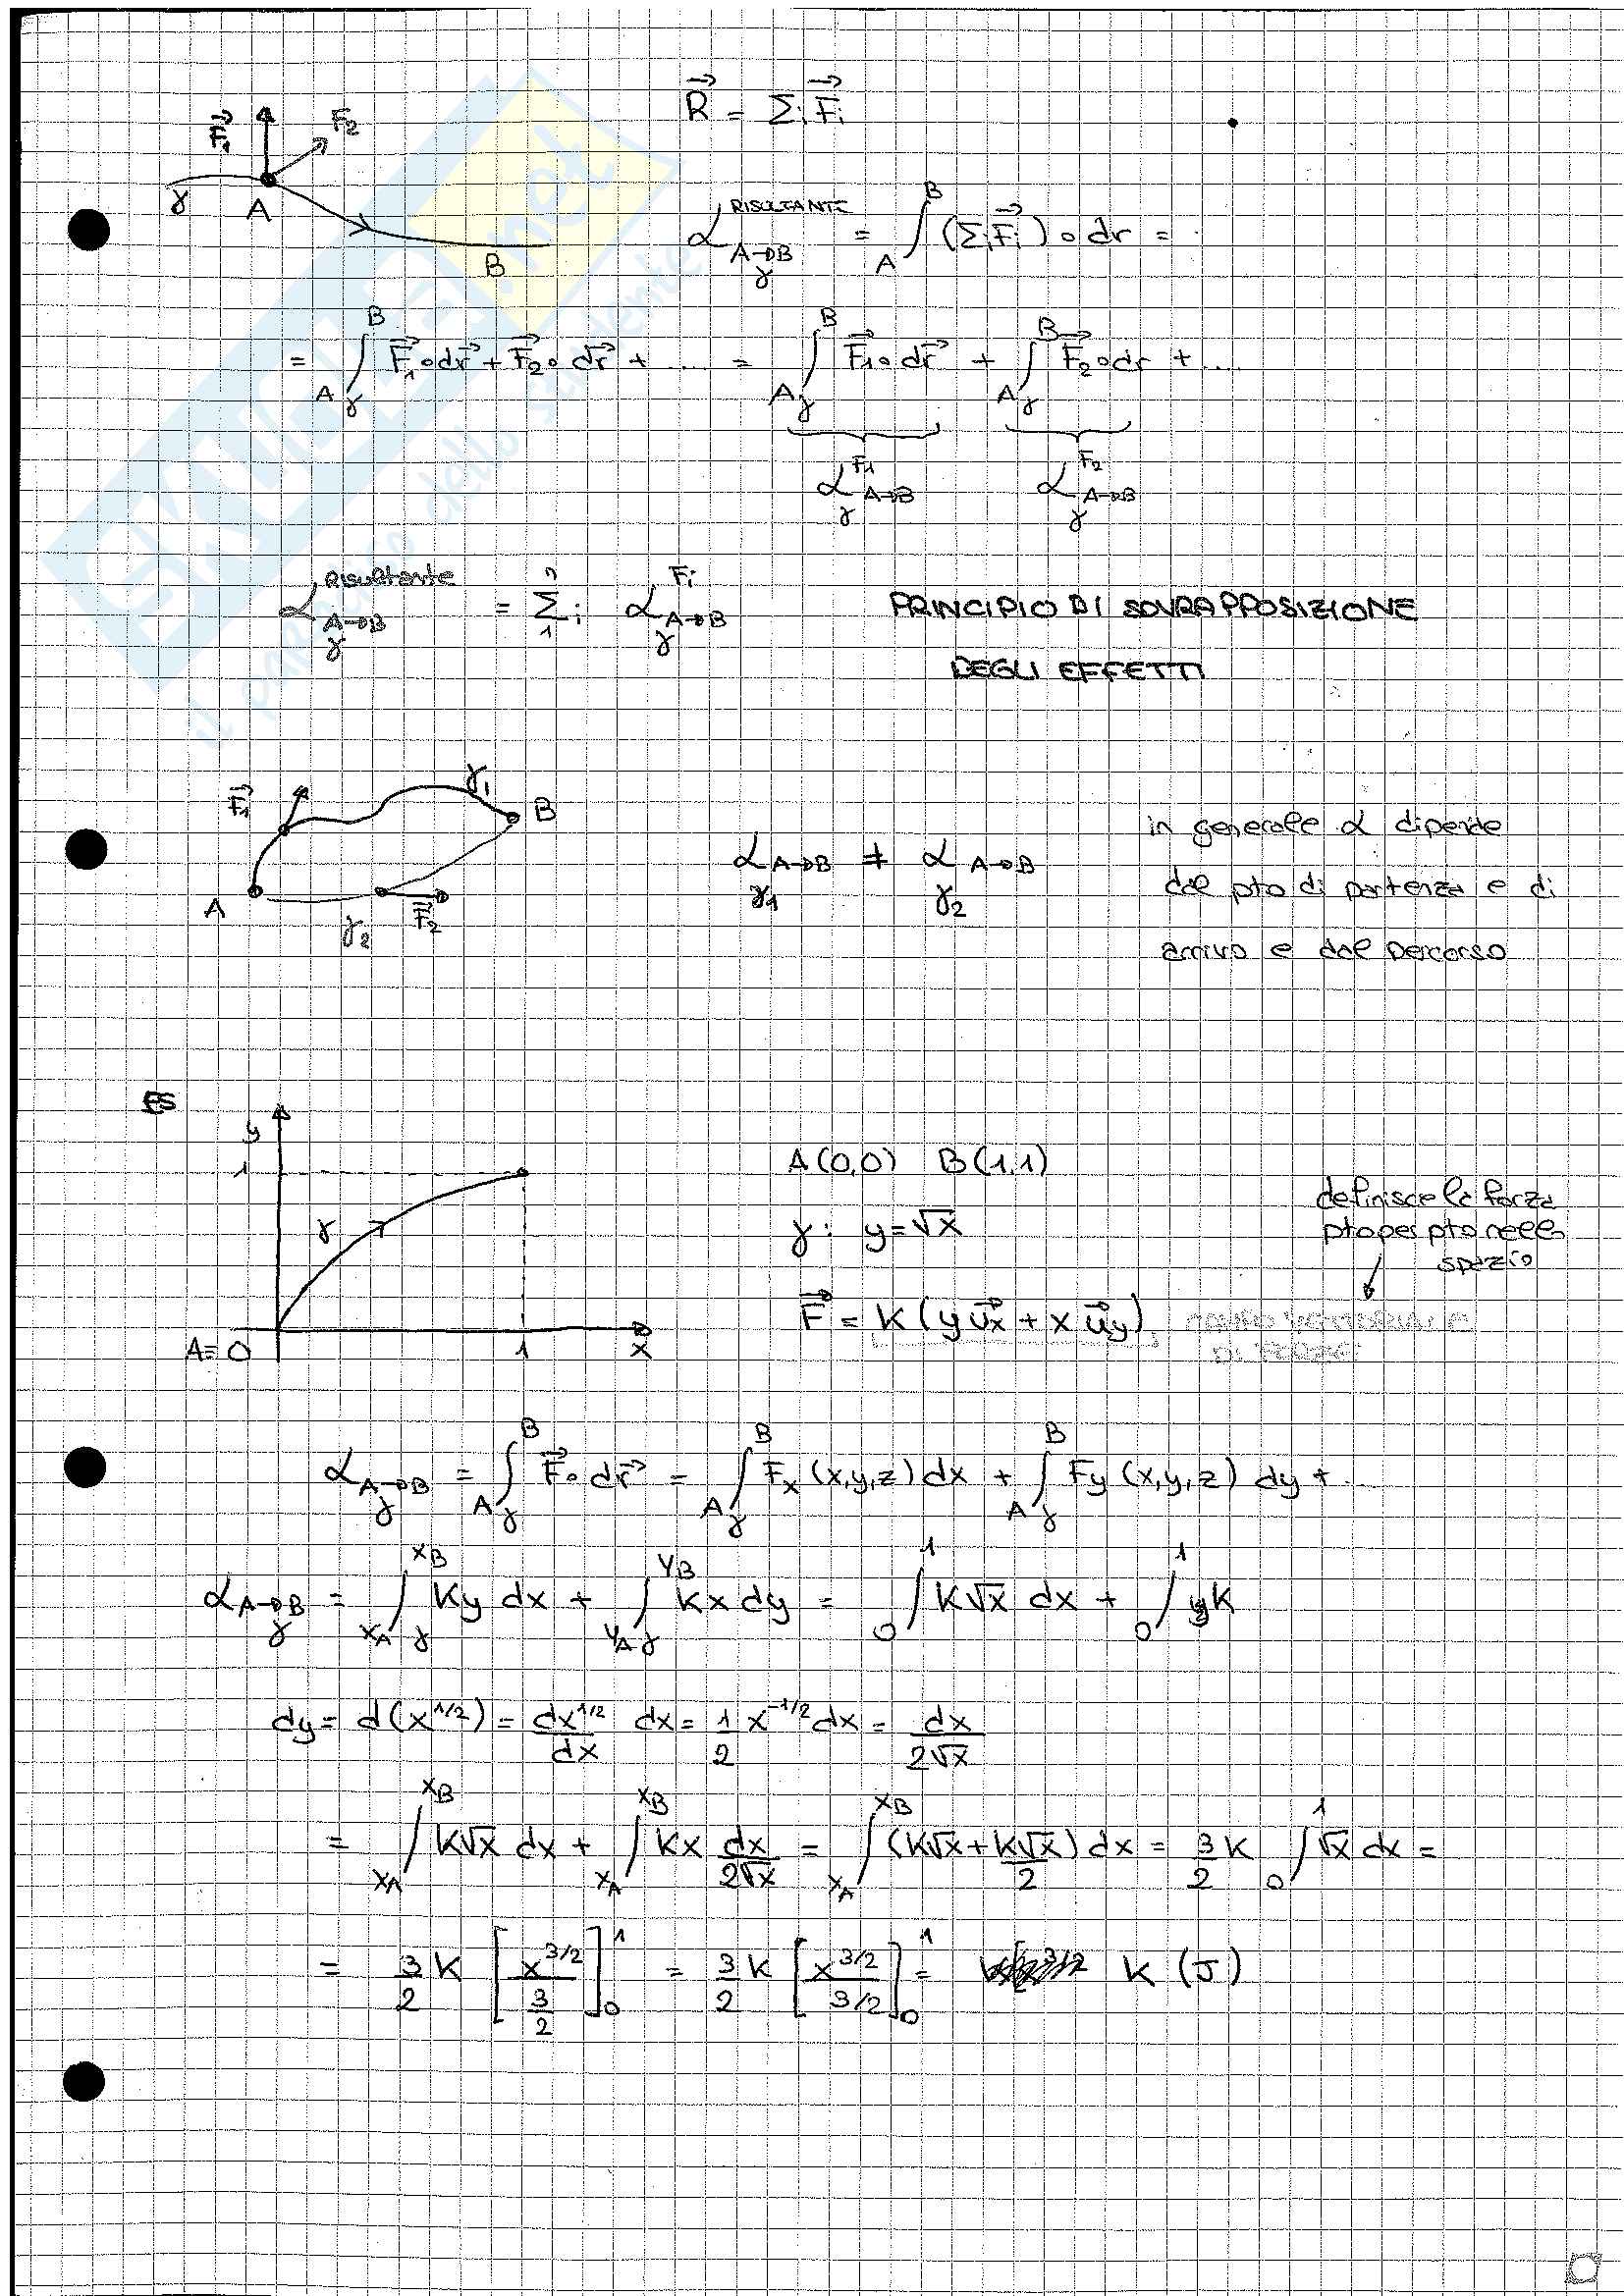 F⃗₁ F₂
γ A B
R⃗ = Σᵢ F⃗ᵢ
α RISULTANTE A→B γ = ∫_A^B (Σᵢ F⃗ᵢ) ∘ dr =
= ∫_{Aγ}^B F⃗₁∘dr⃗ + F⃗₂∘dr⃗ + .... = ∫_{Aγ}^B F⃗₁∘dr⃗ + ∫_{Aγ}^B F⃗₂∘dr + ...
α^{F₁} A→B γ α^{F₂} A→B γ
α Risultante A→B γ = Σᵢ₁ⁿ α^{Fᵢ} A→B γ
PRINCIPIO DI SOVRAPPOSIZIONE
DEGLI EFFETTI
F⃗₁ γ₁ B
A γ₂ F⃗₂
α A→B γ₁ ≠ α A→B γ₂
in generale α dipende
dal pto di partenza e di
arrivo e dal percorso
ES
y
1
γ
A=0 1 x
A(0,0) B(1,1)
γ: y=√x
F⃗ = K(y u⃗x + x u⃗y)
definisce la forza
pto per pto nello
spazio
DI FORZE
α A→B γ = ∫_{Aγ}^B F⃗∘dr⃗ = ∫_{Aγ}^B Fx(x,y,z)dx + ∫_{Aγ}^B Fy(x,y,z) dy + ..
α A→B γ = ∫_{xA γ}^{xB} Ky dx + ∫_{yA γ}^{yB} Kx dy = ∫_0^1 K√x dx + ∫_0^1 yK
dy = d(x^{1/2}) = dx^{1/2}/dx dx = 1/2 x^{-1/2} dx = dx/2√x
= ∫_{xA}^{xB} K√x dx + ∫_{xA}^{xB} Kx dx/2√x = ∫_{xA}^{xB} (K√x + K√x/2) dx = 3/2 K ∫_0^1 √x dx =
= 3/2 K [x^{3/2}/(3/2)]_0^1 = 3/2 K [x^{3/2}/3/2]_0^1 = K (J)